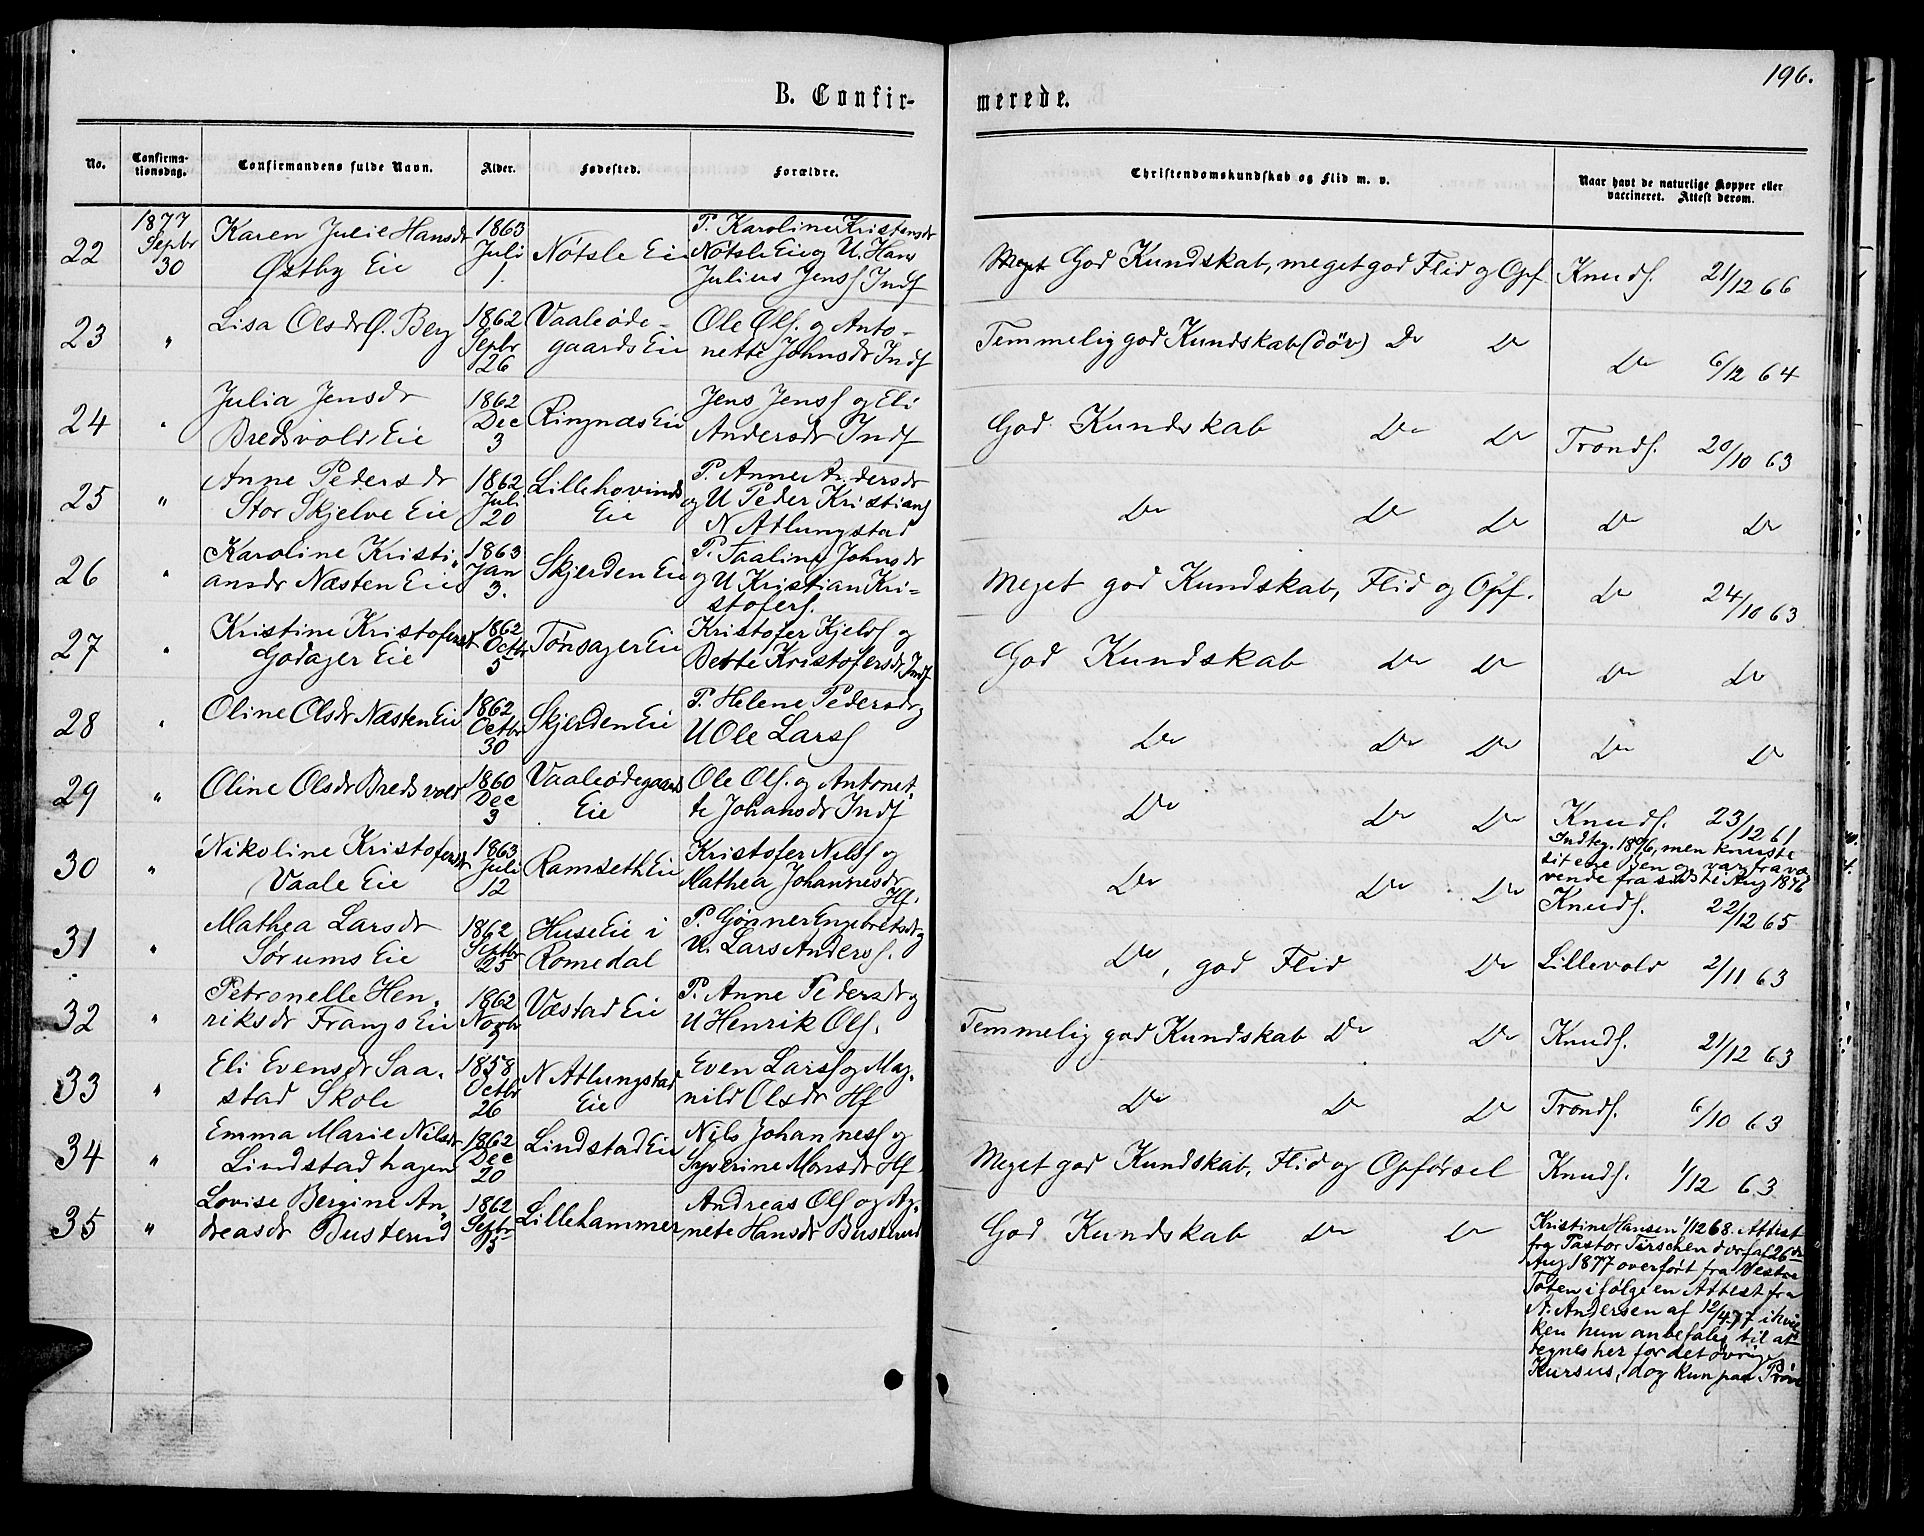 196.
B. Confir-
merede.
No.
Confirma-
tionsdag.
Confirmandens fulde Navn.
Alder.
Fødested.
Forældre.
Christendomskundskab og Flid m. v.
Naar havt de naturlige Kopper eller
vaccineret. Attest derom.
22
1877
Sepbr
30
Karen Julie Hansdr
Østby Eie
1863
Juli
1.
Nøtsle Eie
P. Karoline Kristensdr
Nøtsle Eie og U. Hans
Julius Jensf Indf
God Kundskab, meget god Flid og Opf
Knuds. 21/12 66
23
"
Lisa Olsdr Ø. Berg
1862
Sepbr
26
Vaaleøde-
gaards Eie
Ole Olf. og Anto-
nette Johnsdr Indf
Temmelig god Kundskab (døv) Do Do
Do 6/12 64
24
"
Julia Jensdr
Bredsvolds Eie
1862
Dec
3
Ringnæs Eie
Jens Jensf og Eli
Andersdr Indf
God Kundskab Do Do
Tronds. 20/10 63
25
"
Anne Pedersdr
Stor Skjelve Eie
1862
Juli
20
Lillehovinds
Eie
P. Anne Andersdr
og U Peder Kristians
N Atlungstad
Do Do Do
Do Do
26
"
Karoline Kristi-
ansdr Næsten Eie
1863
Jan
3.
Skjerden Eie
P. Paaline Johnsdr
og U Kristian Kri-
stofers.
Meget god Kundskab, Flid og Opf.
Do 24/10 63
27
"
Kristine Kristofersdr
Godager Eie
1862
Octbr
5
Tønsager Eie
Kristofer Kjelds og
Bette Kristofersdr Indf
God Kundskab Do Do
Do Do
28
"
Oline Olsdr Næsten Eie
1862
Octbr
30
Skjerden Eie
P. Helene Pedersdr og
U Ole Larsf
Do Do Do
Do Do
29
"
Oline Olsdr Bredsvold
1860
Dec
3
Vaaleødegaards
Eie
Ole Olf. og Antonet-
te Johansdr Indf
Do Do Do
Knuds. 23/12 61
30
"
Nikoline Kristofersdr
Vaale Eie
1863
Juli
12
Ramseth Eie
Kristofer Nilsf og
Mathea Johannesdr
Hf.
Do Do Do
Indteg. 1876, men knuste
sit ene Ben og var fravæ
vende fra sidste Aug 1876
Knuds. 22/12 65
31
"
Mathea Larsdr
Sørums Eie
1862
Septbr
25
Huse Eie i
Romedal
P. Gønner Engebretsdr og
U. Lars Anders.
Do, god Flid Do
Lillevold 2/11 63
32
"
Petronelle Hen-
riksdr Frangs Eie
1862
Novbr
Væstad Eie
P. Anne Pedersdr og
U Henrik Olf.
Temmelig god Kundskab Do Do
Knuds. 21/12 63
33
"
Eli Evensdr Saa-
stad Skole
1858
Octbr
26
N Atlungstad
Eie
Even Larsf og Mag-
nild Olsdr Hf
Do Do Do
Tronds. 6/10 63
34
"
Emma Marie Nilsdr
Lindstadhagen
1862
Dec
20
Lindstad Eie
Nils Johannesf og
Syverine Monsdr Hf
Meget god Kundskab, Flid og Opførsel
Knuds. 1/12 63
35
"
Lovise Bergine An-
dreasdr Busterud
1862
Sepbr
15
Lillehammer
Andreas Olf og Ag-
nete Hansdr Busterud
God Kundskab Do Do
Kristine Hansen 1/12 68. Attest
fra Pastor
Aug 1877 overført fra Vestre
Toten ifølge en Attest fra
N. Andersen af 12/4 77 i hvil
ken hun anbefales til at
tegnes her for det øvrige
Kursus, dog kun paa Prøve